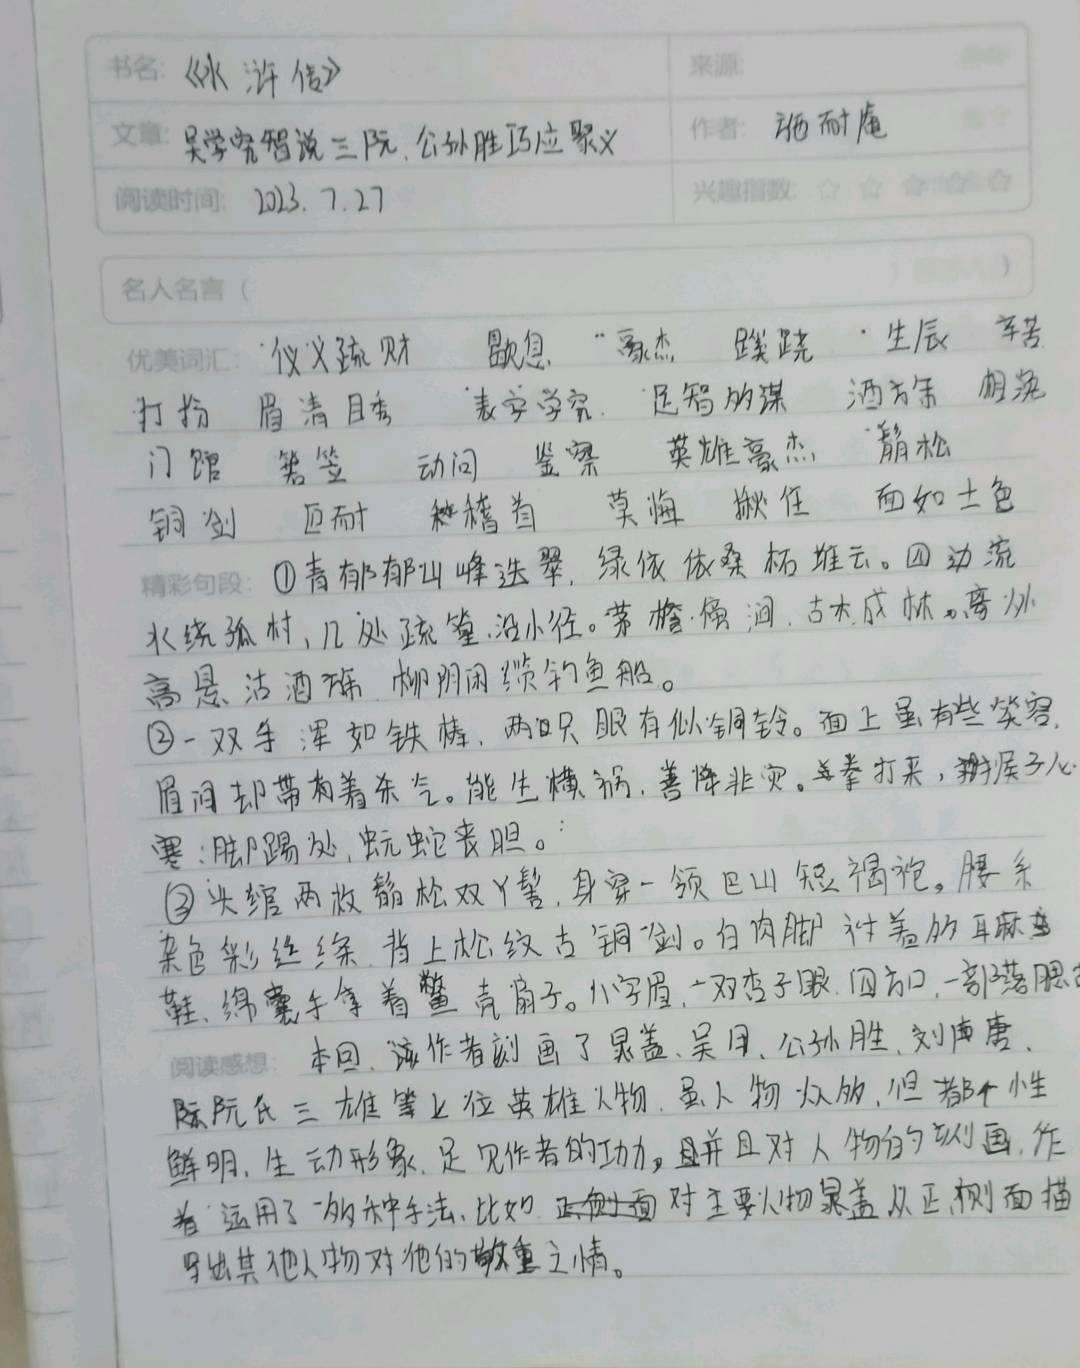 书名: 《水浒传》 来源:
文章: 吴学究智说三阮.公孙胜巧应聚义 作者: 施耐庵
阅读时间: 2023.7.27 兴趣指数: ☆ ☆ ☆ ☆ ☆
名人名言 ( )
优美词汇: 仗义疏财 歇息 豪杰 蹊跷 生辰 辛苦
打扮 眉清目秀 表字学究 足智多谋 酒 相浼
门馆 箬笠 动问 鉴察 英雄豪杰 鬅松
铜剑 叵耐 稽首 莫悔 揪住 面如土色
精彩句段: ①青郁郁山峰迭翠,绿依依桑柘堆云。四边流
水绕孤村,几处疏篁沿小径。茅檐傍涧,古木成林。篱外
高悬沽酒旆,柳阴闲缆钓鱼船。
②一双手浑如铁棒,两只眼有似铜铃。面上虽有些笑容,
眉间却带有着杀气。能生横祸,善降非灾。拳打来,狮子心
寒;脚踢处,蚖蛇丧胆。
③头绾两枚鬅松双丫髻,身穿一领巴山短褐袍。腰系
杂色彩丝绦,背上松纹古铜剑。白肉脚衬着多耳麻
鞋,绵囊手拿着鳖壳扇子。八字眉,一双杏子眼.四方口,一部落腮
阅读感想: 本回,该作者刻画了晁盖、吴用、公孙胜、刘唐、
阮氏三雄等七位英雄人物.虽人物众多,但都个性
鲜明,生动形象,足见作者的功力。并且对人物的刻画,作
者运用了多种手法,比如 对主要人物晁盖从正,侧面描
写出其他人物对他的敬重之情。